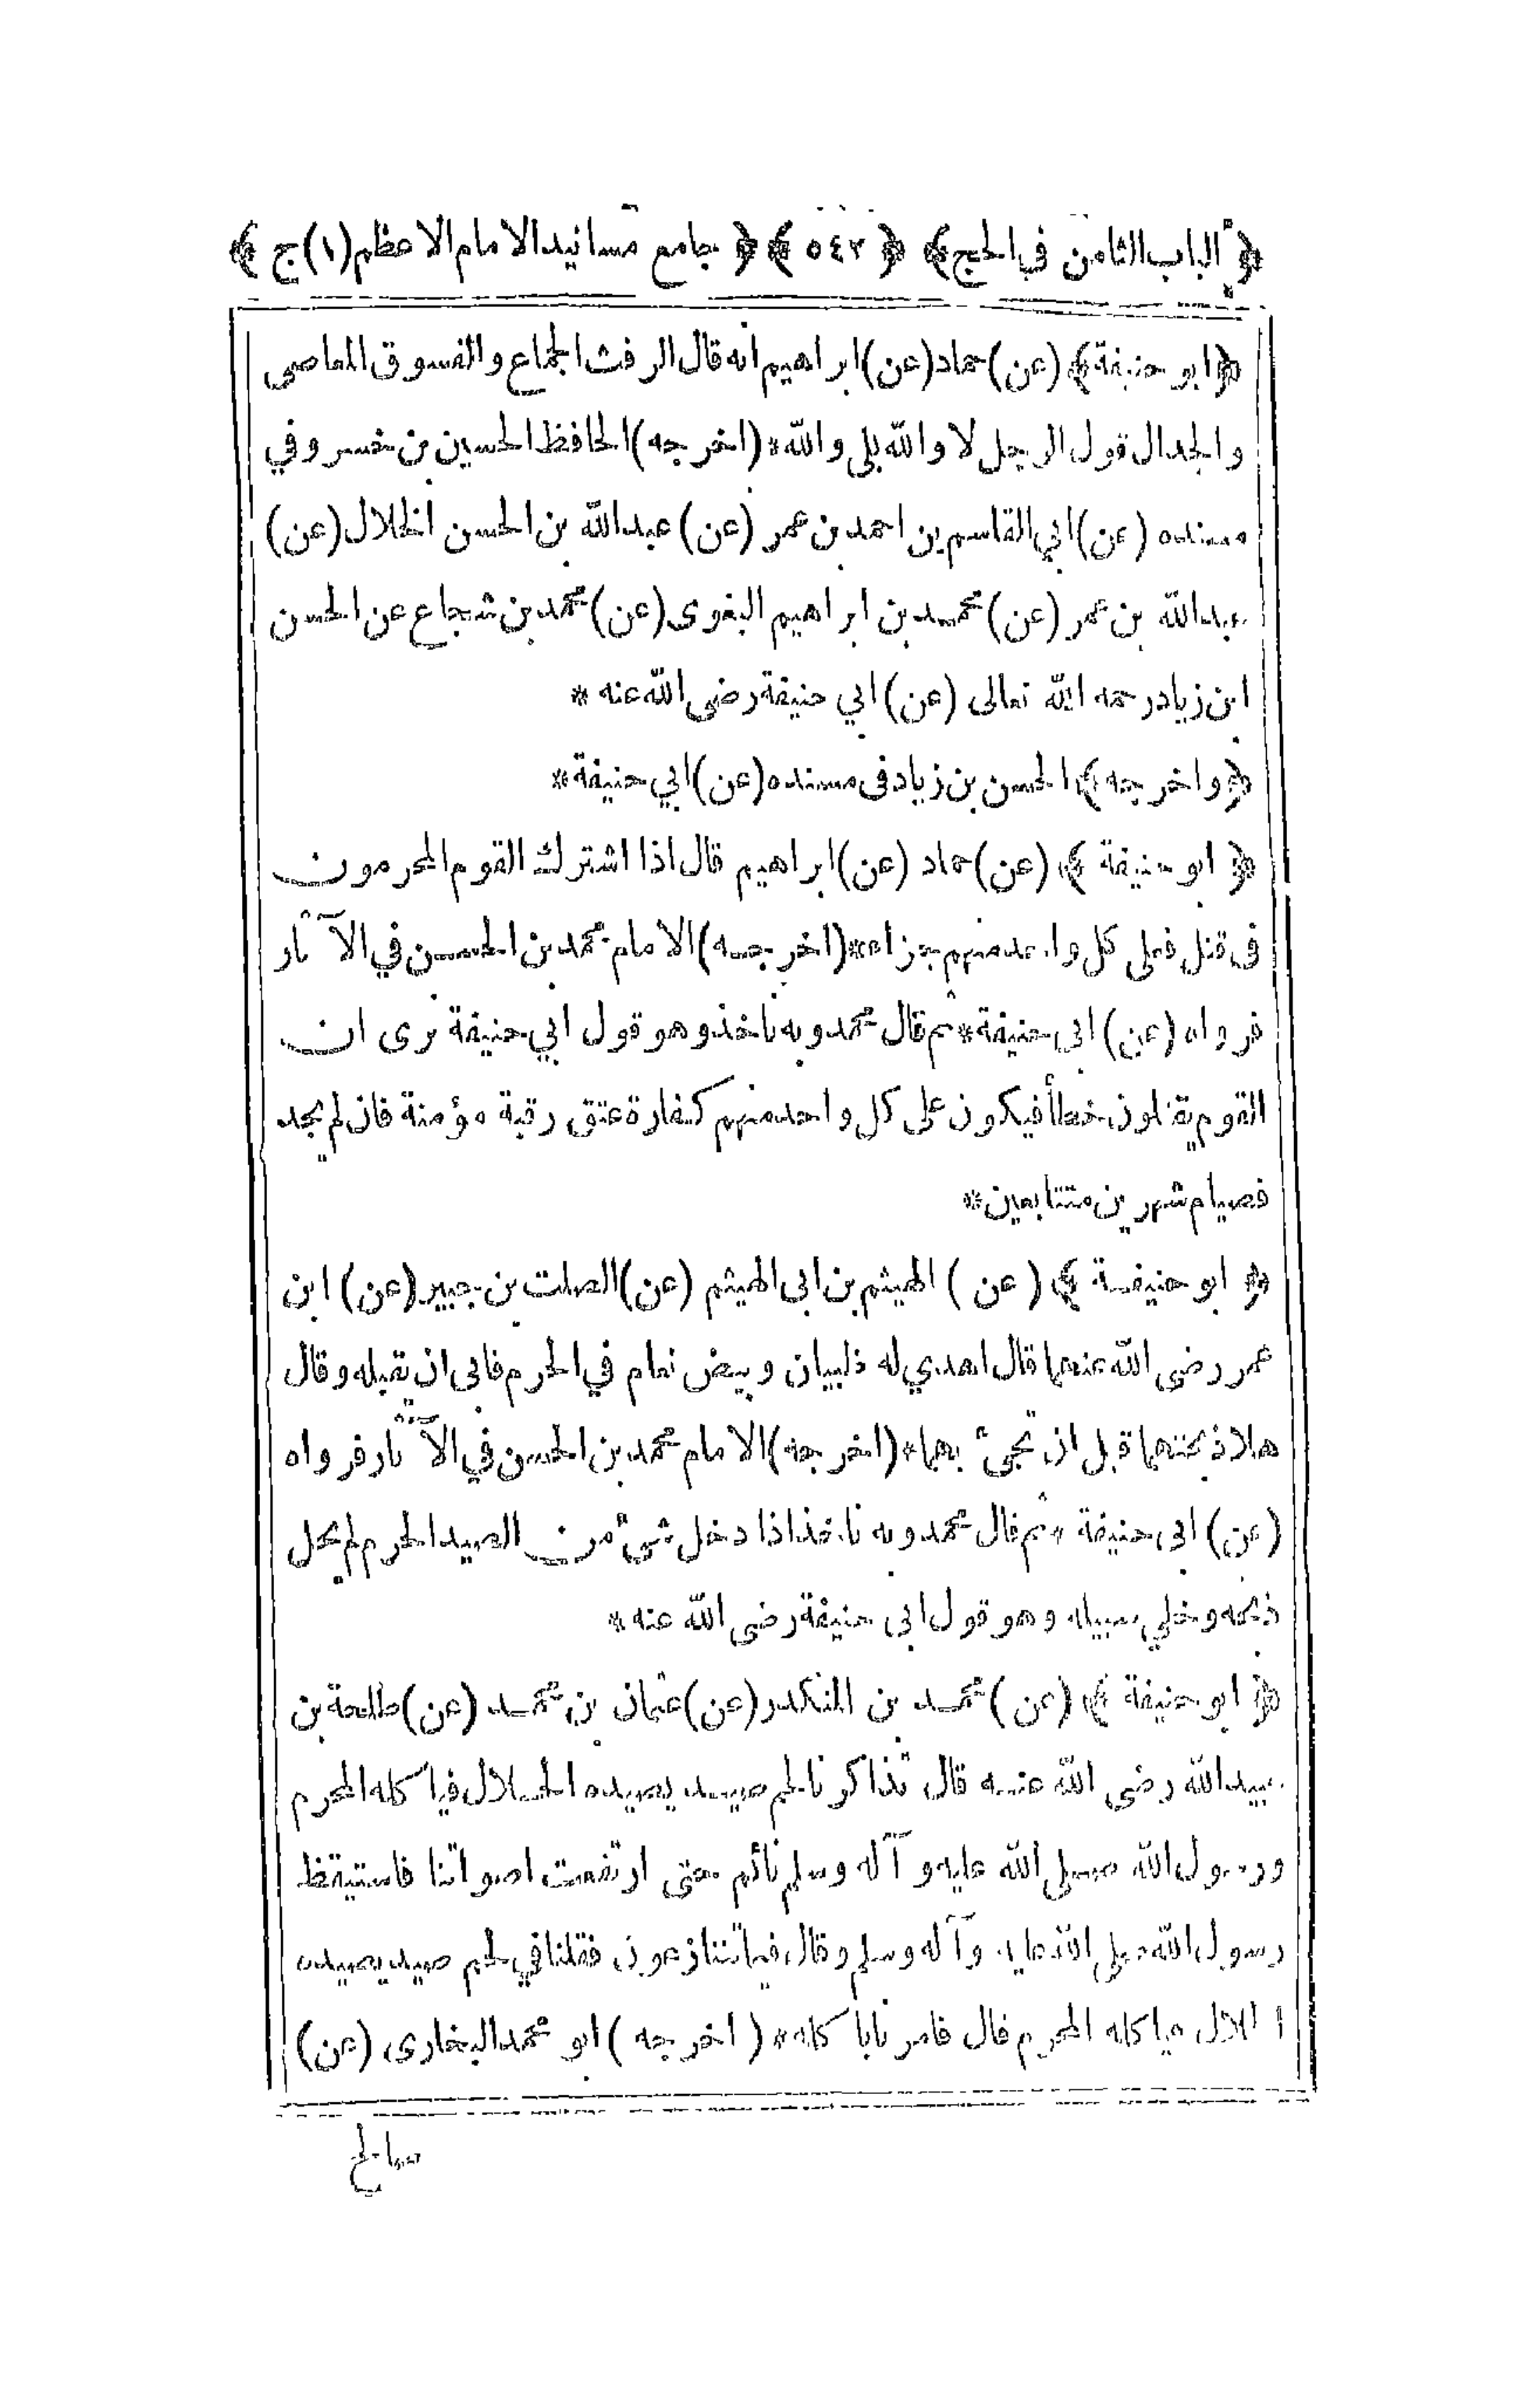 ﴿ الباب الثامن في الحج ﴾ ﴿ ٥٤٢ ﴾ ﴿ جامع مسانيد الامام الاعظم (١) ج ﴾
﴿ ابو حنيفة ﴾ (عن) حماد (عن) ابراهيم انه قال الرفث الجماع والفسوق المعاصى
والجدال قول الرجل لا والله بلى والله * (اخرجه) الحافظ الحسين بن خسرو في
مسنده (عن) ابي القاسم بن احمد بن عمر (عن) عبد الله بن الحسن الخلال (عن)
عبد الله بن عمر (عن) محمد بن ابراهيم البغوى (عن) محمد بن شجاع عن الحسن
ابن زياد رحمه الله تعالى (عن) ابي حنيفة رضى الله عنه *
﴿ واخرجه ﴾ الحسن بن زياد فى مسنده (عن) ابي حنيفة *
﴿ ابو حنيفة ﴾ (عن) حماد (عن) ابراهيم قال اذا اشترك القوم المحرمون
فى قتل فعلى كل واحد منهم جزاء * (اخرجه) الامام محمد بن الحسن في الآثار
فرواه (عن) ابى حنيفة * ثم قال محمد وبه ناخذ وهو قول ابي حنيفة يرى ان
القوم يقتلون خطأ فيكون على كل واحد منهم كفارة عتق رقبة مؤمنة فان لم يجد
فصيام شهرين متتابعين *
﴿ ابو حنيفة ﴾ (عن) الهيثم بن ابى الهيثم (عن) الصلت بن جبير (عن) ابن
عمر رضى الله عنهما قال اهدي له ظبيان وبيض نعام في الحرم فابى ان يقبله وقال
هلا ذبحتهما قبل ان تجيئ بهما * (اخرجه) الامام محمد بن الحسن في الآثار فرواه
(عن) ابى حنيفة * ثم قال محمد وبه ناخذ اذا دخل شيئ من الصيد الحرم لم يحل
ذبحه وخلي سبيله وهو قول ابى حنيفة رضى الله عنه *
﴿ ابو حنيفة ﴾ (عن) محمد بن المنكدر (عن) عثمان بن محمد (عن) طلحة بن
عبيد الله رضى الله عنه قال تذاكرنا لحم صيد يصيده الحلال فياكله المحرم
ورسول الله صلى الله عليه وآله وسلم نائم حتى ارتفعت اصواتنا فاستيقظ
رسول الله صلى الله عليه وآله وسلم وقال فيما تتنازعون فقلنا في لحم صيد يصيده
الحلال فياكله المحرم قال فامرنا باكله * (اخرجه) ابو محمد البخارى (عن)
صالح